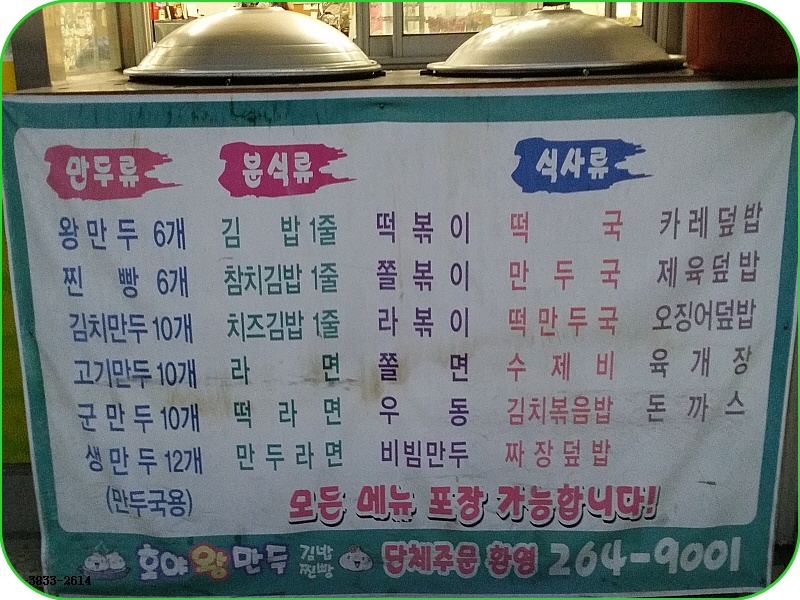 만두류
왕만두 6개
찐빵 6개
김치만두 10개
고기만두 10개
군만두 10개
생만두 12개
(만두국용)
분식류
김밥 1줄
참치김밥 1줄
치즈김밥 1줄
라면
떡라면
만두라면
떡볶이
쫄볶이
라볶이
쫄면
우동
비빔만두
식사류
떡국
만두국
떡만두국
수제비
김치볶음밥
짜장덮밥
카레덮밥
제육덮밥
오징어덮밥
육개장
돈까스
모든 메뉴 포장 가능합니다!
호야왕만두 김밥 찐빵 단체주문 환영 264-9001
3833-2614